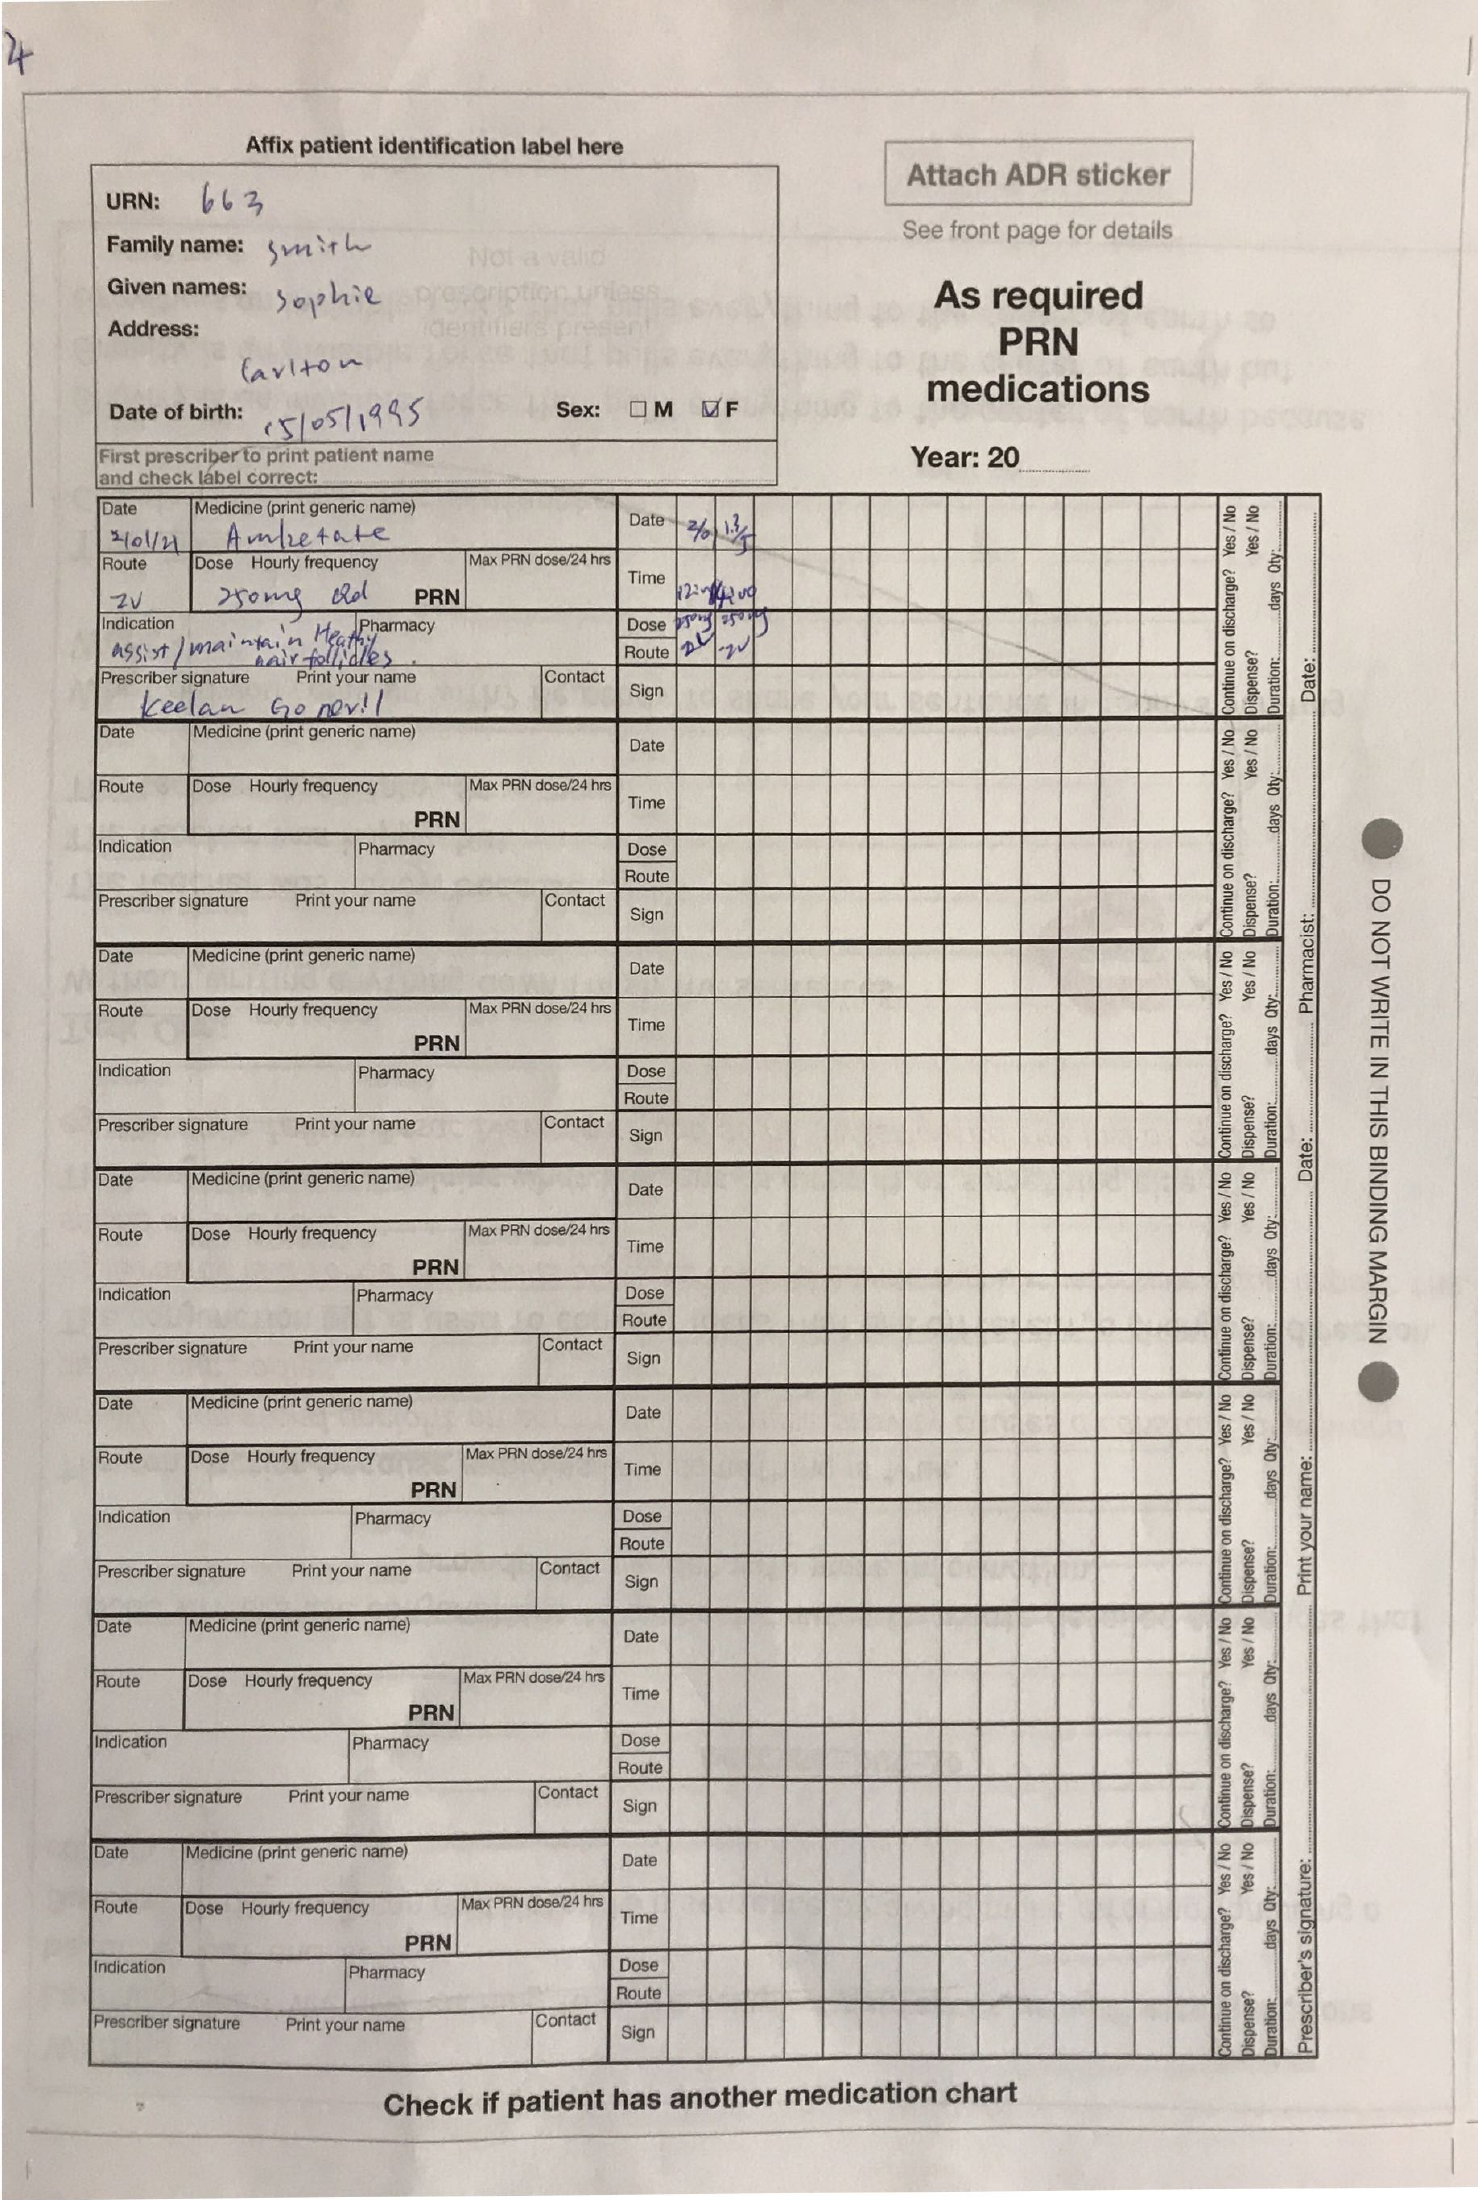 4
Affix patient identification label here
URN: 663
Family name: Smith
Given names: Sophie
Address:
Carlton
Date of birth: 15/05/1995 Sex: M F
First prescriber to print patient name
and check label correct:
Not a valid
prescription unless
identifiers present
Attach ADR sticker
See front page for details
As required
PRN
medications
Year: 20
Date Medicine (print generic name) Date
Route Dose Hourly frequency Max PRN dose/24 hrs Time
250mg PRN
Indication Pharmacy Dose 250mg 250mg
assist/maintain Heathy
hair follicles. Route
Prescriber signature Print your name Contact Sign
Keelan Goneril
Continue on discharge? Yes / No
Dispense? Yes / No
Duration: days Qty:
Date Medicine (print generic name) Date
Route Dose Hourly frequency Max PRN dose/24 hrs Time
PRN
Indication Pharmacy Dose
Route
Prescriber signature Print your name Contact Sign
Continue on discharge? Yes / No
Dispense? Yes / No
Duration: days Qty:
Date Medicine (print generic name) Date
Route Dose Hourly frequency Max PRN dose/24 hrs Time
PRN
Indication Pharmacy Dose
Route
Prescriber signature Print your name Contact Sign
Continue on discharge? Yes / No
Dispense? Yes / No
Duration: days Qty:
Date Medicine (print generic name) Date
Route Dose Hourly frequency Max PRN dose/24 hrs Time
PRN
Indication Pharmacy Dose
Route
Prescriber signature Print your name Contact Sign
Continue on discharge? Yes / No
Dispense? Yes / No
Duration: days Qty:
Date Medicine (print generic name) Date
Route Dose Hourly frequency Max PRN dose/24 hrs Time
PRN
Indication Pharmacy Dose
Route
Prescriber signature Print your name Contact Sign
Continue on discharge? Yes / No
Dispense? Yes / No
Duration: days Qty:
Date Medicine (print generic name) Date
Route Dose Hourly frequency Max PRN dose/24 hrs Time
PRN
Indication Pharmacy Dose
Route
Prescriber signature Print your name Contact Sign
Continue on discharge? Yes / No
Dispense? Yes / No
Duration: days Qty:
Date Medicine (print generic name) Date
Route Dose Hourly frequency Max PRN dose/24 hrs Time
PRN
Indication Pharmacy Dose
Route
Prescriber signature Print your name Contact Sign
Continue on discharge? Yes / No
Dispense? Yes / No
Duration: days Qty:
Prescriber's signature: Print your name: Date: Pharmacist: Date:
DO NOT WRITE IN THIS BINDING MARGIN
Check if patient has another medication chart